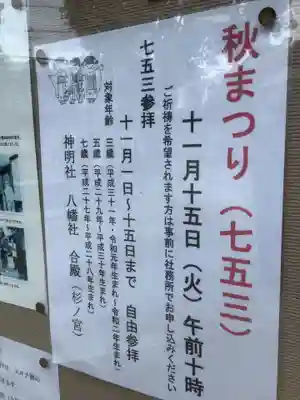 秋まつり（七五三）
十一月十五日（火）午前十時
ご祈祷を希望されます方は事前に社務所でお申し込みください
七五三参拝
十一月一日～十五日まで　自由参拝
対象年齢
三歳（平成三十一年・令和元年生まれ～令和二年生まれ）
五歳（平成二十九年～平成三十年生まれ）
七歳（平成二十七年～平成二十八年生まれ）
神明社　八幡社　合殿（杉ノ宮）